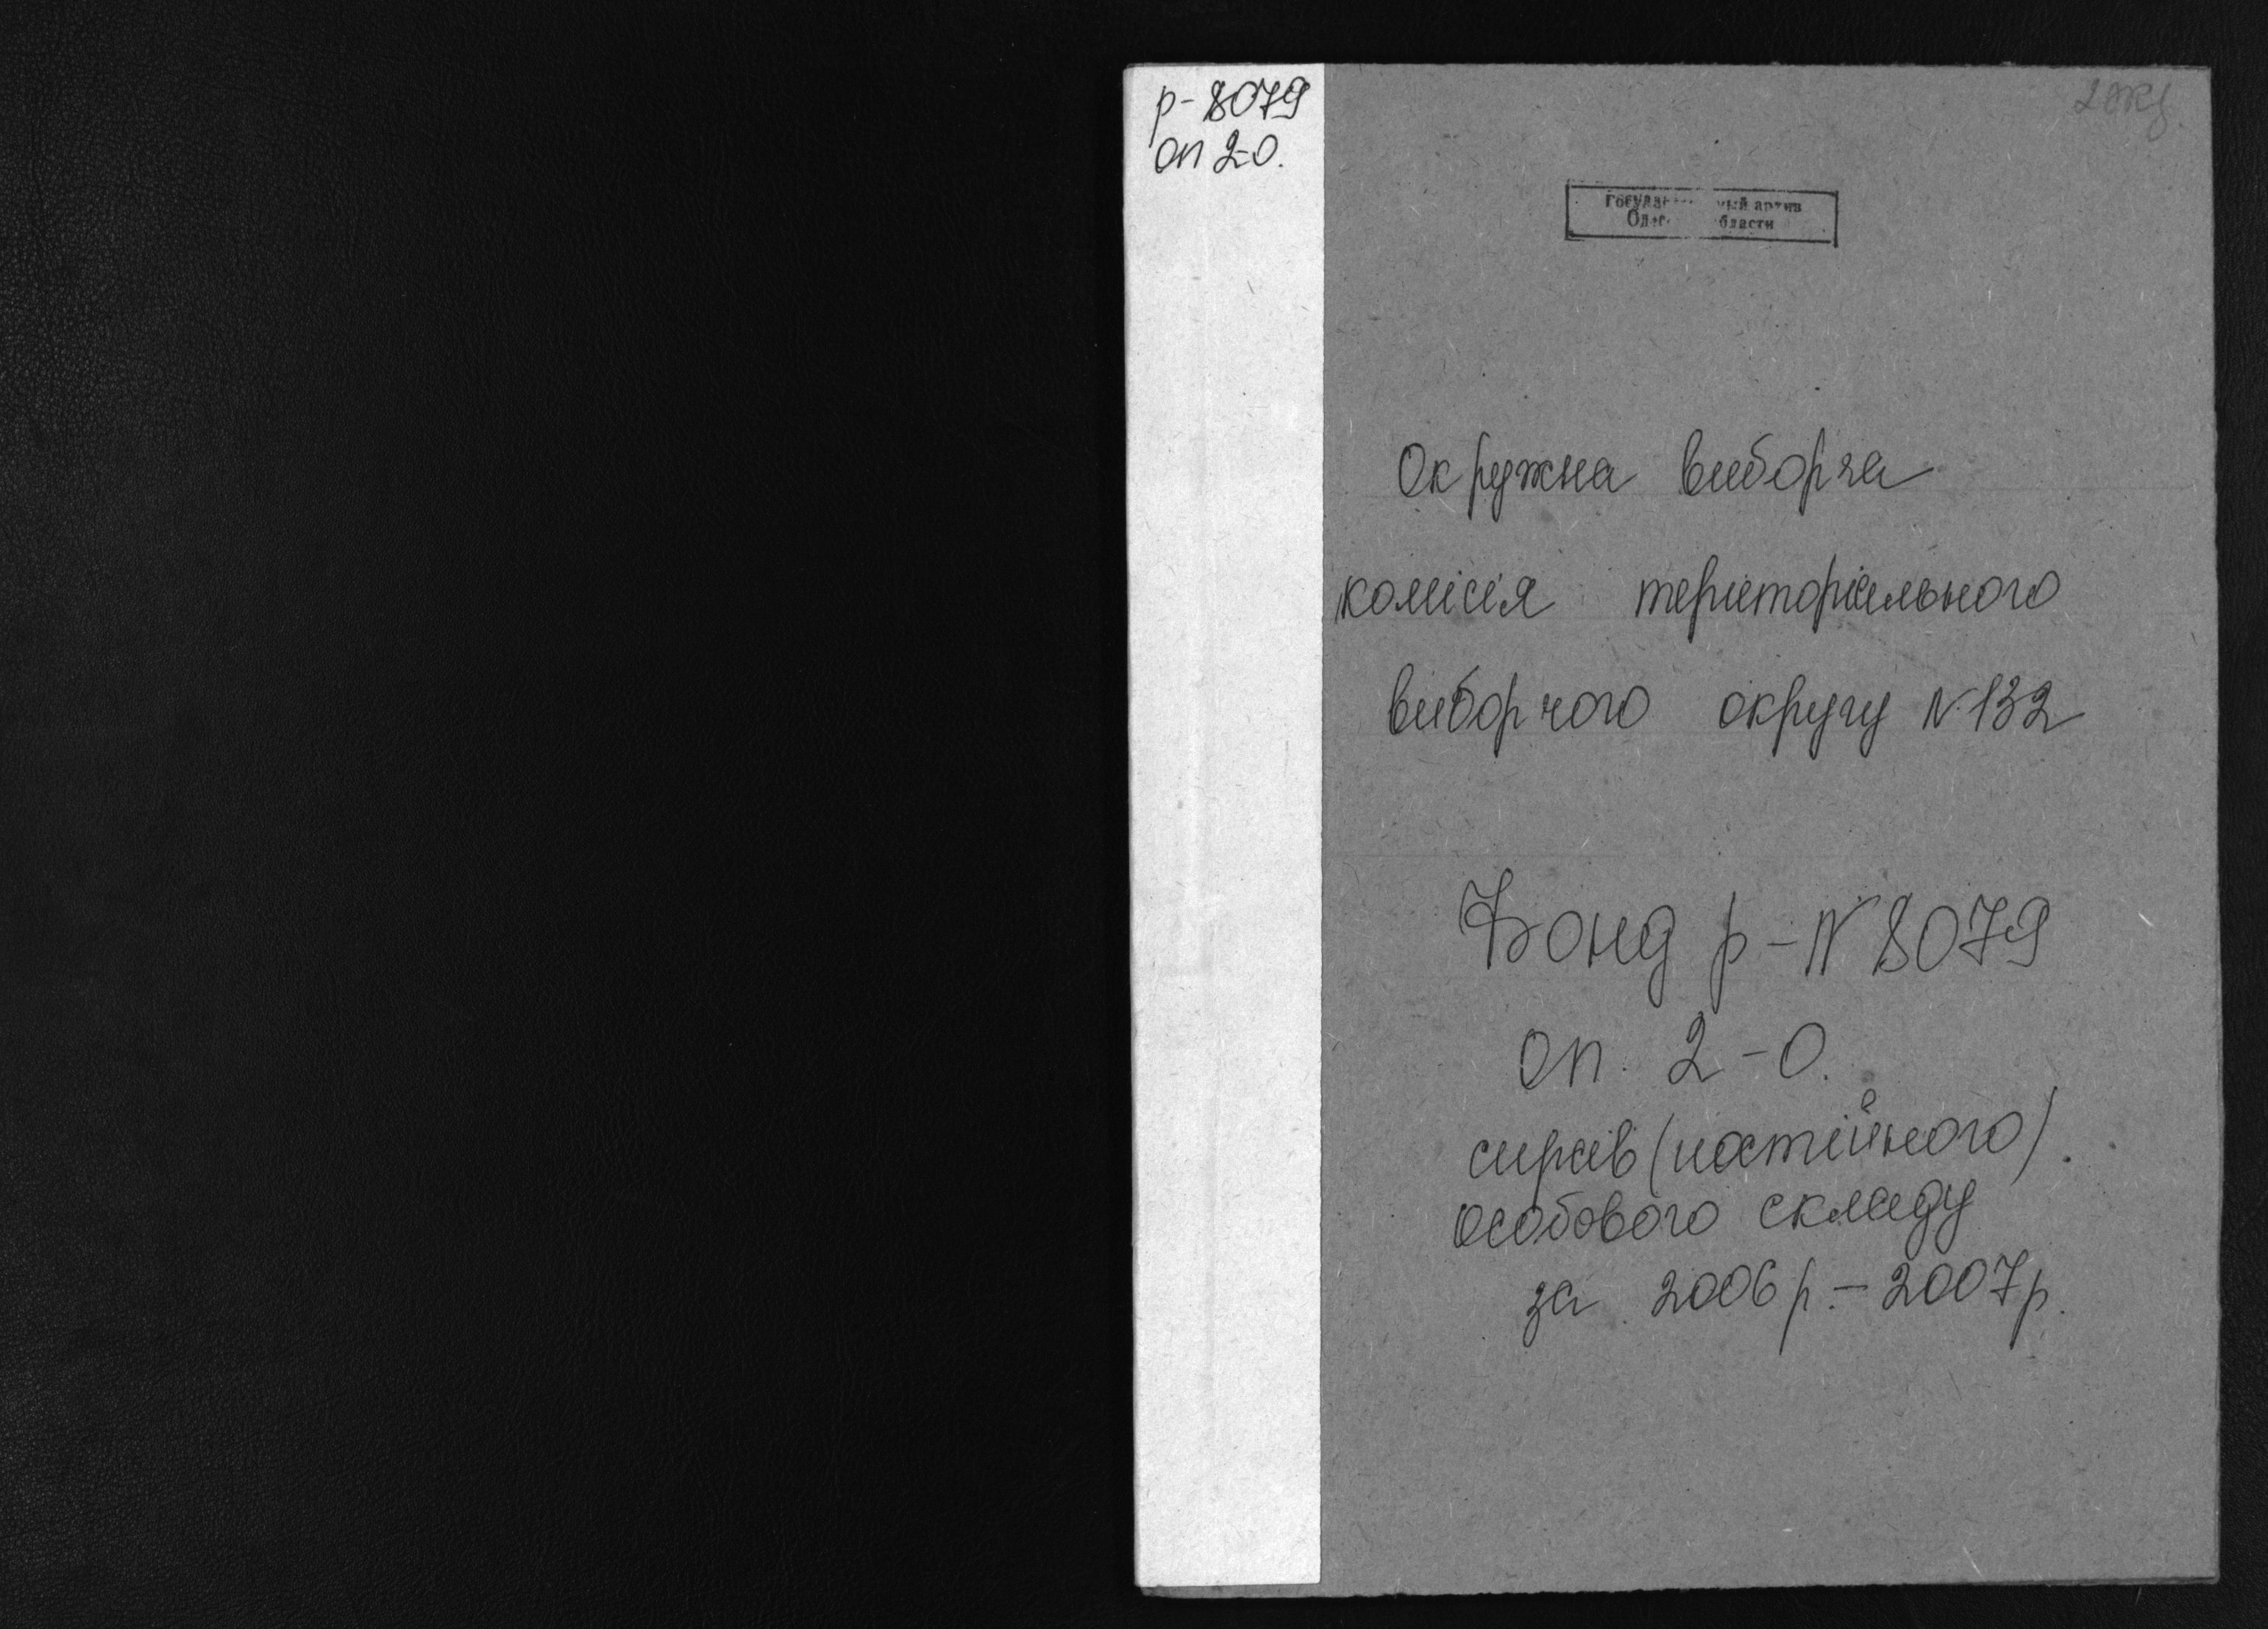 р-8079
оп 2-0.
2 экз.
Государственный архив
Одес. области
Окружна виборча
комісія територіального
виборчого округу N 132
Фонд р-N 8079
оп. 2-0.
справ (постійного)
особового складу
за 2006 р. - 2007 р.